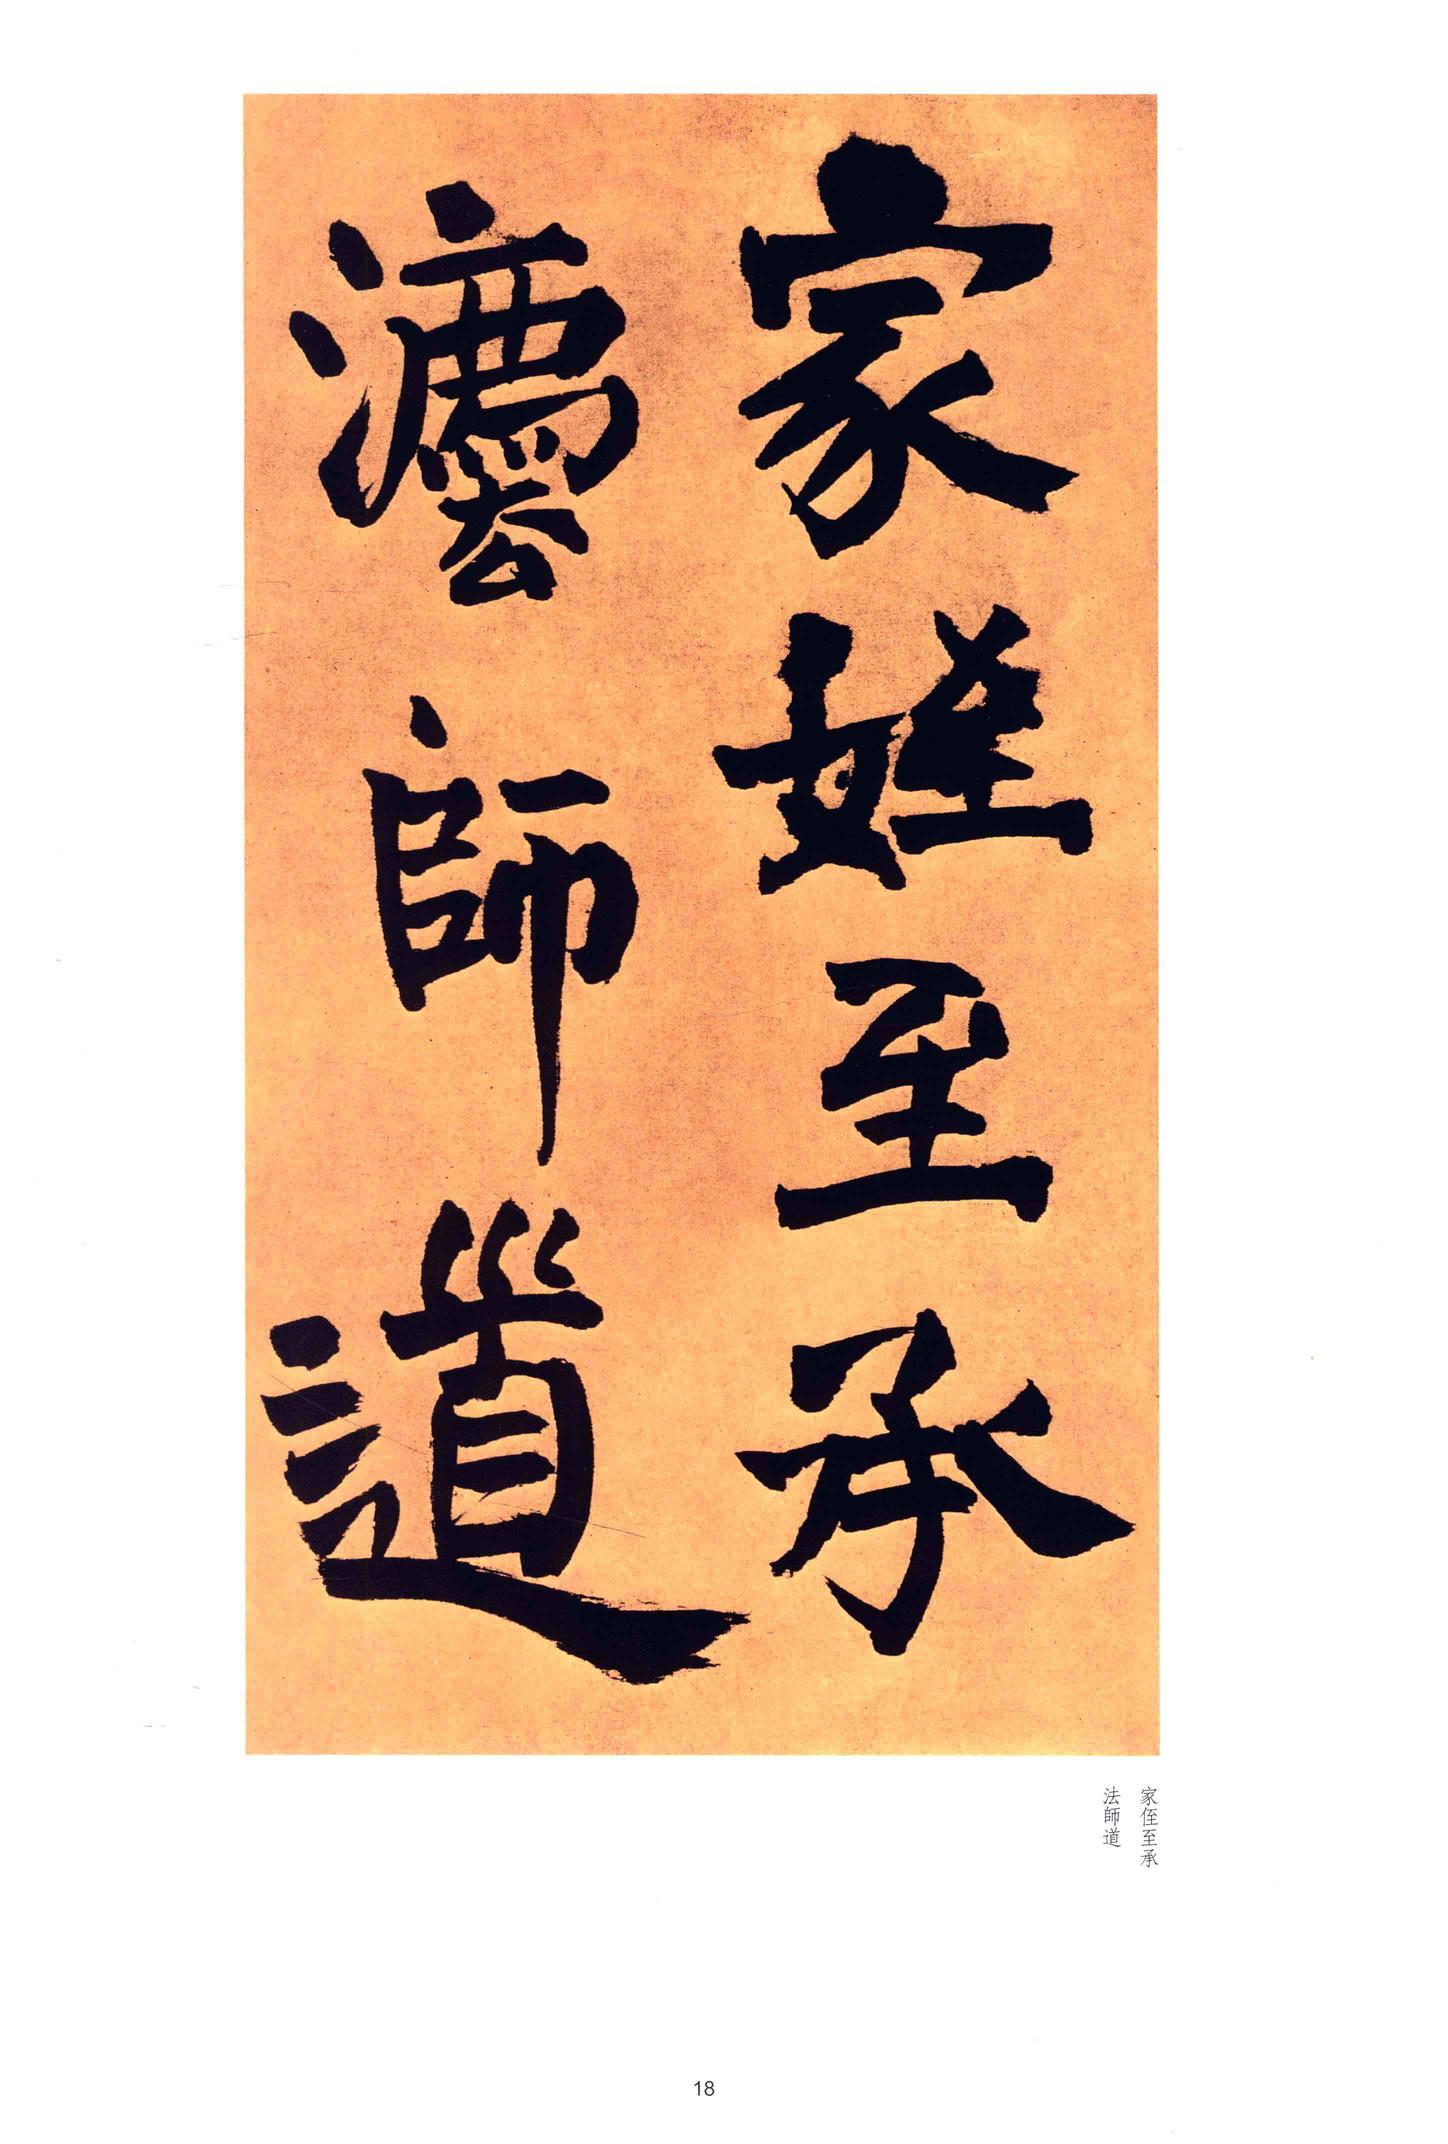 家姪至承
灋師道
家侄至承
法師道
18